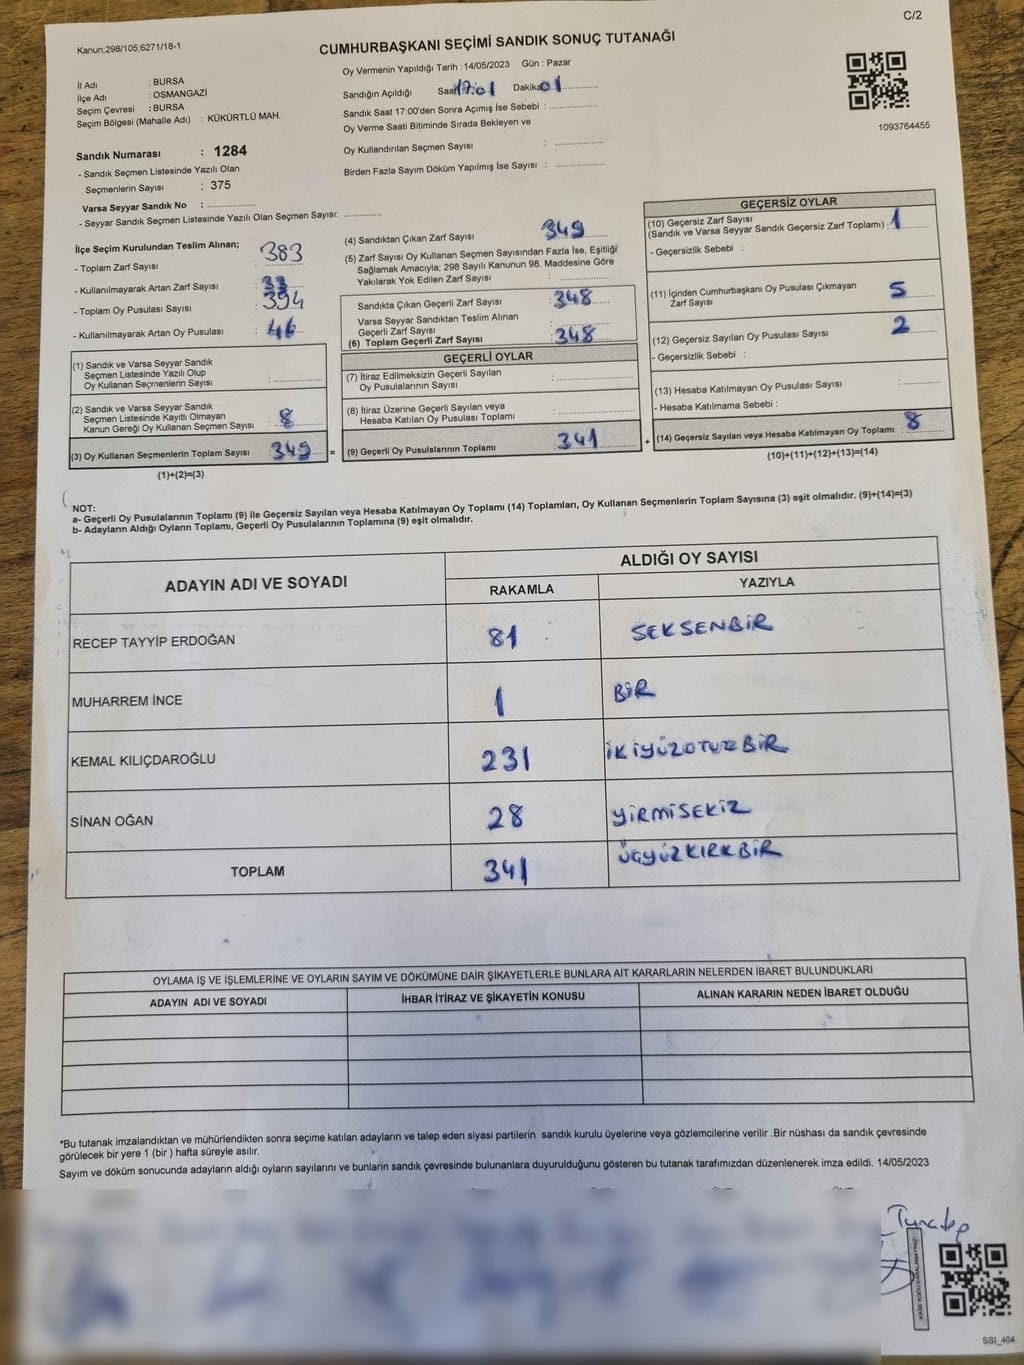 C/2
Kanun;298/105;6271/18-1
CUMHURBAŞKANI SEÇİMİ SANDIK SONUÇ TUTANAĞI
İl Adı : BURSA
İlçe Adı : OSMANGAZİ
Seçim Çevresi : BURSA
Seçim Bölgesi (Mahalle Adı) : KÜKÜRTLÜ MAH.
Oy Vermenin Yapıldığı Tarih : 14/05/2023 Gün : Pazar
Sandığın Açıldığı Saat 17:01 Dakika 01
Sandık Saat 17:00'den Sonra Açımış İse Sebebi :
Oy Verme Saati Bitiminde Sırada Bekleyen ve
Oy Kullandırılan Seçmen Sayısı :
Birden Fazla Sayım Döküm Yapılmış İse Sayısı :
1093764455
Sandık Numarası : 1284
- Sandık Seçmen Listesinde Yazılı Olan
Seçmenlerin Sayısı : 375
Varsa Seyyar Sandık No :
- Seyyar Sandık Seçmen Listesinde Yazılı Olan Seçmen Sayısı:
İlçe Seçim Kurulundan Teslim Alınan;
- Toplam Zarf Sayısı : 383
- Kullanılmayarak Artan Zarf Sayısı :
- Toplam Oy Pusulası Sayısı : 394
- Kullanılmayarak Artan Oy Pusulası : 46
(1) Sandık ve Varsa Seyyar Sandık
Seçmen Listesinde Yazılı Olup
Oy Kullanan Seçmenlerin Sayısı :
(2) Sandık ve Varsa Seyyar Sandık
Seçmen Listesinde Kayıtlı Olmayan
Kanun Gereği Oy Kullanan Seçmen Sayısı : 8
(3) Oy Kullanan Seçmenlerin Toplam Sayısı : 349 =
(1)+(2)=(3)
(4) Sandıktan Çıkan Zarf Sayısı : 349
(5) Zarf Sayısı Oy Kullanan Seçmen Sayısından Fazla İse, Eşitliği
Sağlamak Amacıyla; 298 Sayılı Kanunun 98. Maddesine Göre
Yakılarak Yok Edilen Zarf Sayısı :
Sandıkta Çıkan Geçerli Zarf Sayısı : 348
Varsa Seyyar Sandıktan Teslim Alınan
Geçerli Zarf Sayısı :
(6) Toplam Geçerli Zarf Sayısı : 348
GEÇERLİ OYLAR
(7) İtiraz Edilmeksizin Geçerli Sayılan
Oy Pusulalarının Sayısı :
(8) İtiraz Üzerine Geçerli Sayılan veya
Hesaba Katılan Oy Pusulası Toplamı :
(9) Geçerli Oy Pusulalarının Toplamı : 341 +
GEÇERSİZ OYLAR
(10) Geçersiz Zarf Sayısı
(Sandık ve Varsa Seyyar Sandık Geçersiz Zarf Toplamı) : 1
- Geçersizlik Sebebi :
(11) İçinden Cumhurbaşkanı Oy Pusulası Çıkmayan
Zarf Sayısı : 5
(12) Geçersiz Sayılan Oy Pusulası Sayısı : 2
- Geçersizlik Sebebi :
(13) Hesaba Katılmayan Oy Pusulası Sayısı :
- Hesaba Katılmama Sebebi :
(14) Geçersiz Sayılan veya Hesaba Katılmayan Oy Toplamı : 8
(10)+(11)+(12)+(13)=(14)
NOT:
a- Geçerli Oy Pusulalarının Toplamı (9) ile Geçersiz Sayılan veya Hesaba Katılmayan Oy Toplamı (14) Toplamları, Oy Kullanan Seçmenlerin Toplam Sayısına (3) eşit olmalıdır. (9)+(14)=(3)
b- Adayların Aldığı Oyların Toplamı, Geçerli Oy Pusulalarının Toplamına (9) eşit olmalıdır.
ADAYIN ADI VE SOYADI
ALDIĞI OY SAYISI
RAKAMLA YAZIYLA
RECEP TAYYİP ERDOĞAN 81 SEKSENBİR
MUHARREM İNCE 1 BİR
KEMAL KILIÇDAROĞLU 231 İKİYÜZOTUZBİR
SİNAN OĞAN 28 YİRMİSEKİZ
TOPLAM 341 ÜÇYÜZKIRKBİR
OYLAMA İŞ VE İŞLEMLERİNE VE OYLARIN SAYIM VE DÖKÜMÜNE DAİR ŞİKAYETLERLE BUNLARA AİT KARARLARIN NELERDEN İBARET BULUNDUKLARI
ADAYIN ADI VE SOYADI İHBAR İTİRAZ VE ŞİKAYETİN KONUSU ALINAN KARARIN NEDEN İBARET OLDUĞU
*Bu tutanak imzalandıktan ve mühürlendikten sonra seçime katılan adayların ve talep eden siyasi partilerin sandık kurulu üyelerine veya gözlemcilerine verilir .Bir nüshası da sandık çevresinde
görülecek bir yere 1 (bir ) hafta süreyle asılır.
Sayım ve döküm sonucunda adayların aldığı oyların sayılarını ve bunların sandık çevresinde bulunanlara duyurulduğunu gösteren bu tutanak tarafımızdan düzenlenerek imza edildi. 14/05/2023
KARE KODU KARALAMAYINIZ!
SSI_404